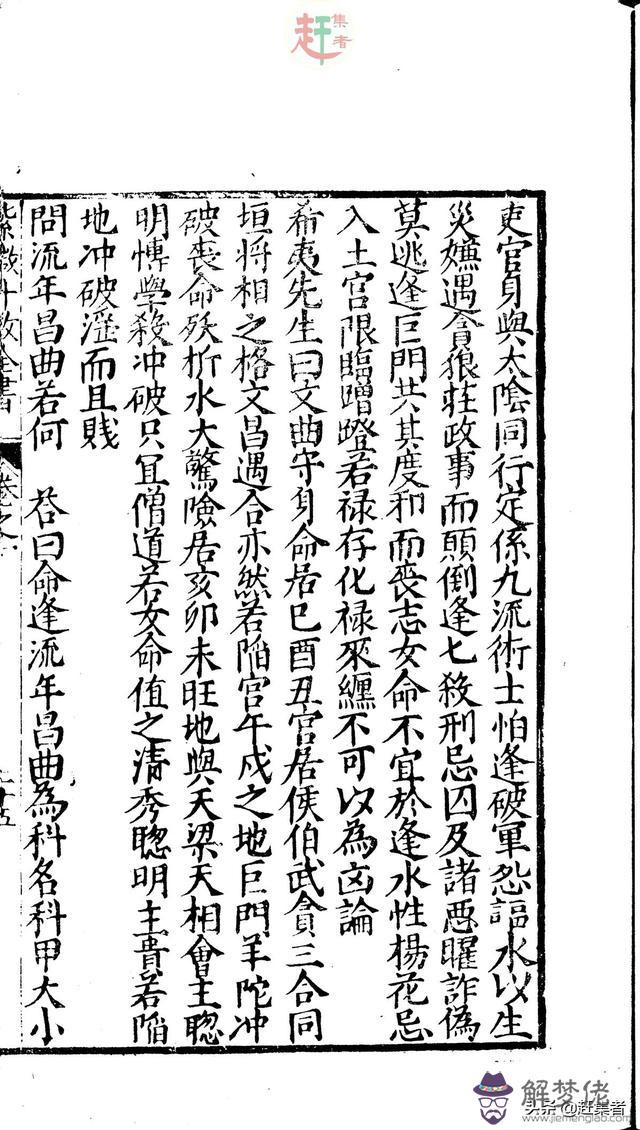 赶集者
吏官身與太陰同行定係九流術士怕逢破軍怨謳水以生
災嫌遇貪狼莅政事而顛倒逢七殺刑忌囚及諸惡曜詐偽
莫逃逢巨門共其度和而喪志女命不宜於逢水性楊花忌
入土宮限臨蹭蹬若禄存化禄來纏不可以為凶論
希夷先生曰文曲守身命居巳酉丑宮居侯伯武貪三合同
垣將相之格文昌遇合亦然若陷宮午戍之地巨門羊陀冲
破喪命殀折水大驚險居亥卯未旺地與天梁天相會主聦
明愽學殺冲破只宜僧道若女命值之清秀聦明主貴若陷
地冲破淫而且賎
問流年昌曲若何 荅曰命逢流年昌曲為科名科甲大小
數斗数全書
卷之一
十五
解梦佬
www.jiemenglab.com
头条@赶集者